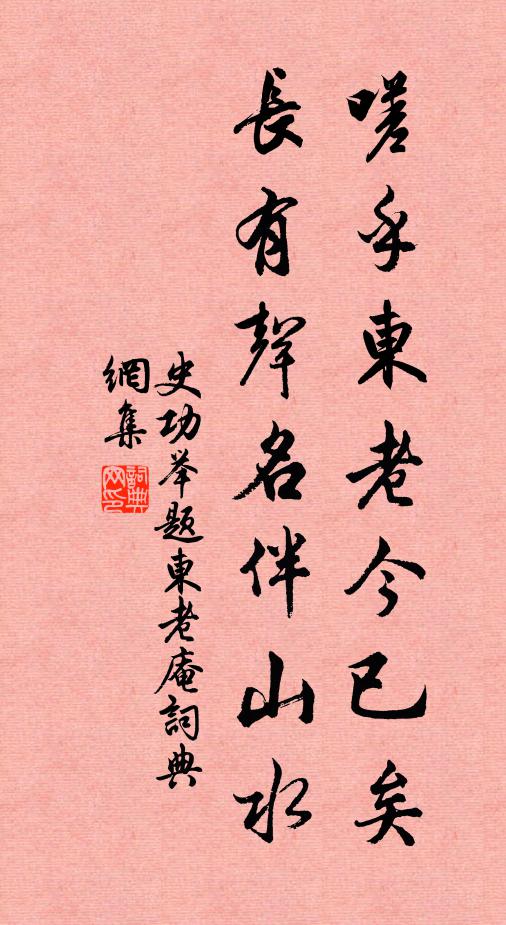 嗟乎東老今已矣
長有聲名伴山水
史功举题東老庵詞典
網集
詞典
网印